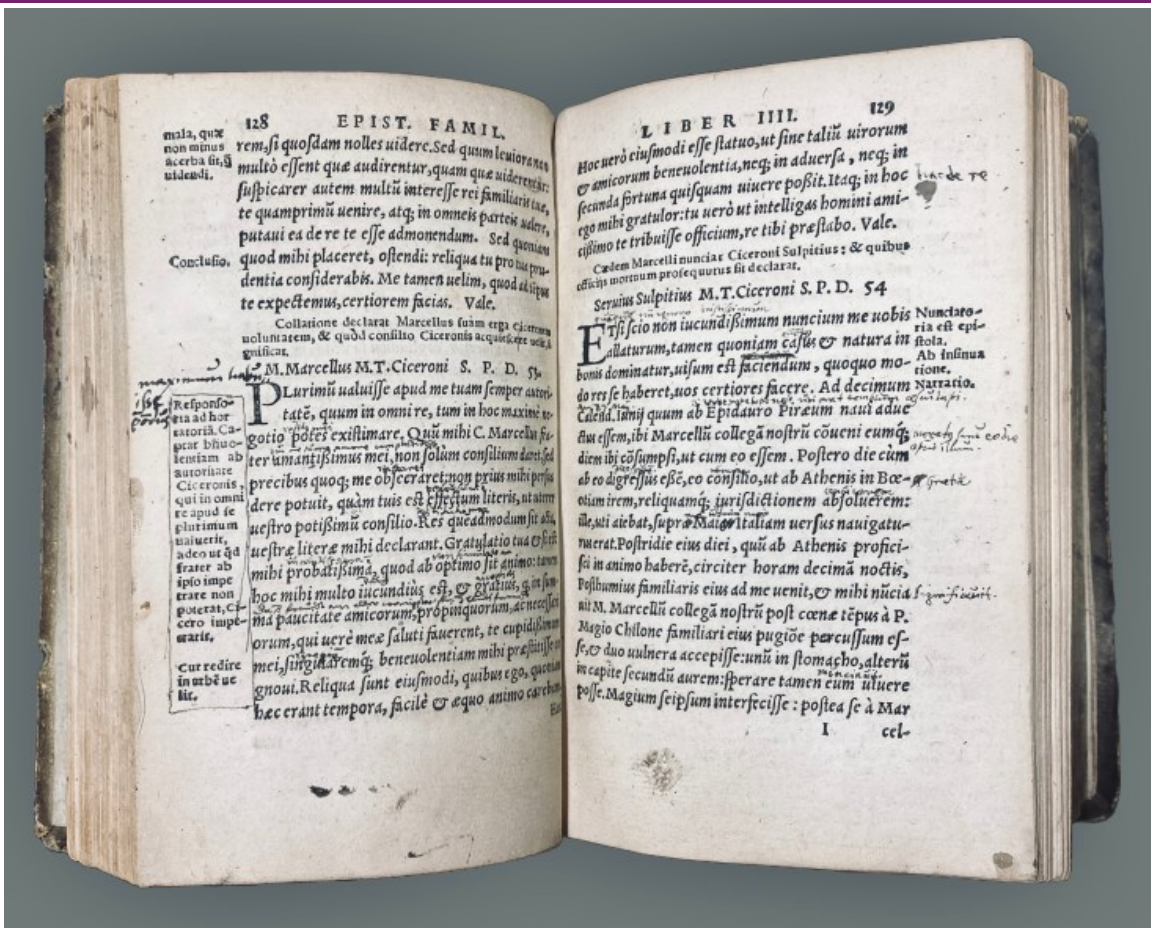 128 EPIST. FAMIL.
mala, quæ
non minus
acerba sit, q̃
uidendi.
rem, si quosdam nolles uidere. Sed quum leuiora non
multò essent quæ audirentur, quam quæ uiderentur:
suspicarer autem multũ interesse rei familiaris tuæ,
te quamprimũ uenire, atq; in omneis parteis ualere,
putaui ea de re te esse admonendum. Sed quoniam
Conclusio.
quod mihi placeret, ostendi: reliqua tu pro tua pru-
dentia considerabis. Me tamen uelim, quod ad tẽpus
te expectemus, certiorem facias. Vale.
Collatione declarat Marcellus suam erga Ciceronem
uoluntatem, & quòd consilio Ciceronis acquiescere uelit, si
gnificat.
M. Marcellus M. T. Ciceroni S. P. D. 53
Responso-
ria ad hor
tatoriã. Ca-
ptat bñuo-
lentiam ab
autoritate
Ciceronis,
qui in omni
re apud se
plurimum
ualuerit,
adeo ut qd
frater ab
ipso impe
trare non
poterat, Ci-
cero impe-
trarit.
Cur redire
in urbẽ ue
lit.
PLurimũ ualuisse apud me tuam semper autori-
tatẽ, quum in omni re, tum in hoc maximè ne-
gotio potes existimare. Quũ mihi C. Marcellus fra-
ter amantißimus mei, non solùm consilium daret, sed
precibus quoq; me obsecraret: non prius mihi persua
dere potuit, quàm tuis est effectum literis, ut uterer
uestro potißimũ consilio. Res quẽadmodum sit acta,
uestræ literæ mihi declarant. Gratulatio tua etsi est
mihi probatißima, quod ab optimo fit animo: tamen
hoc mihi multo iucundius est, & gratius, q̃ in sum
ma paucitate amicorum, propinquorum, ac necessari
orum, qui uerè meæ saluti fauerent, te cupidißimum
mei, singularemq; beneuolentiam mihi præstitisse co
gnoui. Reliqua sunt eiusmodi, quibus ego, quoniam
hæc erant tempora, facilè & æquo animo carebam.
LIBER IIII. 129
Hoc uerò eiusmodi esse statuo, ut sine taliũ uirorum
& amicorum beneuolentia, neq; in aduersa, neq; in
secunda fortuna quisquam uiuere poßit. Itaq; in hoc
hac de re
ego mihi gratulor: tu uerò ut intelligas homini ami-
cißimo te tribuisse officium, re tibi præstabo. Vale.
Cædem Marcelli nunciat Ciceroni Sulpitius: & quibus
officijs mortuum prosequutus sit declarat.
Seruius Sulpitius M. T. Ciceroni S. P. D. 54
ETsi scio non iucundißimum nuncium me uobis
allaturum, tamen quoniam casus & natura in
bonis dominatur, uisum est faciendum, quoquo mo-
do res se haberet, uos certiores facere. Ad decimum
Nunciato-
ria est epi-
stola.
Ab insinua
tione.
Narratio.
Calend. Iunij quum ab Epidauro Piræum naui adue
ctus essem, ibi Marcellũ collegã nostrũ cõueni eumq;
diem ibi cõsumpsi, ut cum eo essem. Postero die cùm
ab eo digressus essẽ, eo cõsilio, ut ab Athenis in Bœ-
otiam irem, reliquamq; iurisdictionem absoluerem:
ille, uti aiebat, supra Maias Italiam uersus nauigatu-
rus erat. Postridie eius diei, quũ ab Athenis profici-
sci in animo haberẽ, circiter horam decimã noctis,
Posthumius familiaris eius ad me uenit, & mihi nũcia
uit M. Marcellũ collegã nostrũ post cœnæ tẽpus à P.
Magio Chilone familiari eius pugiõe percussum es-
se, & duo uulnera accepisse: unũ in stomacho, alterũ
in capite secundũ aurem: sperare tamen eum uiuere
posse. Magium seipsum interfecisse: postea se à Mar
I cel-